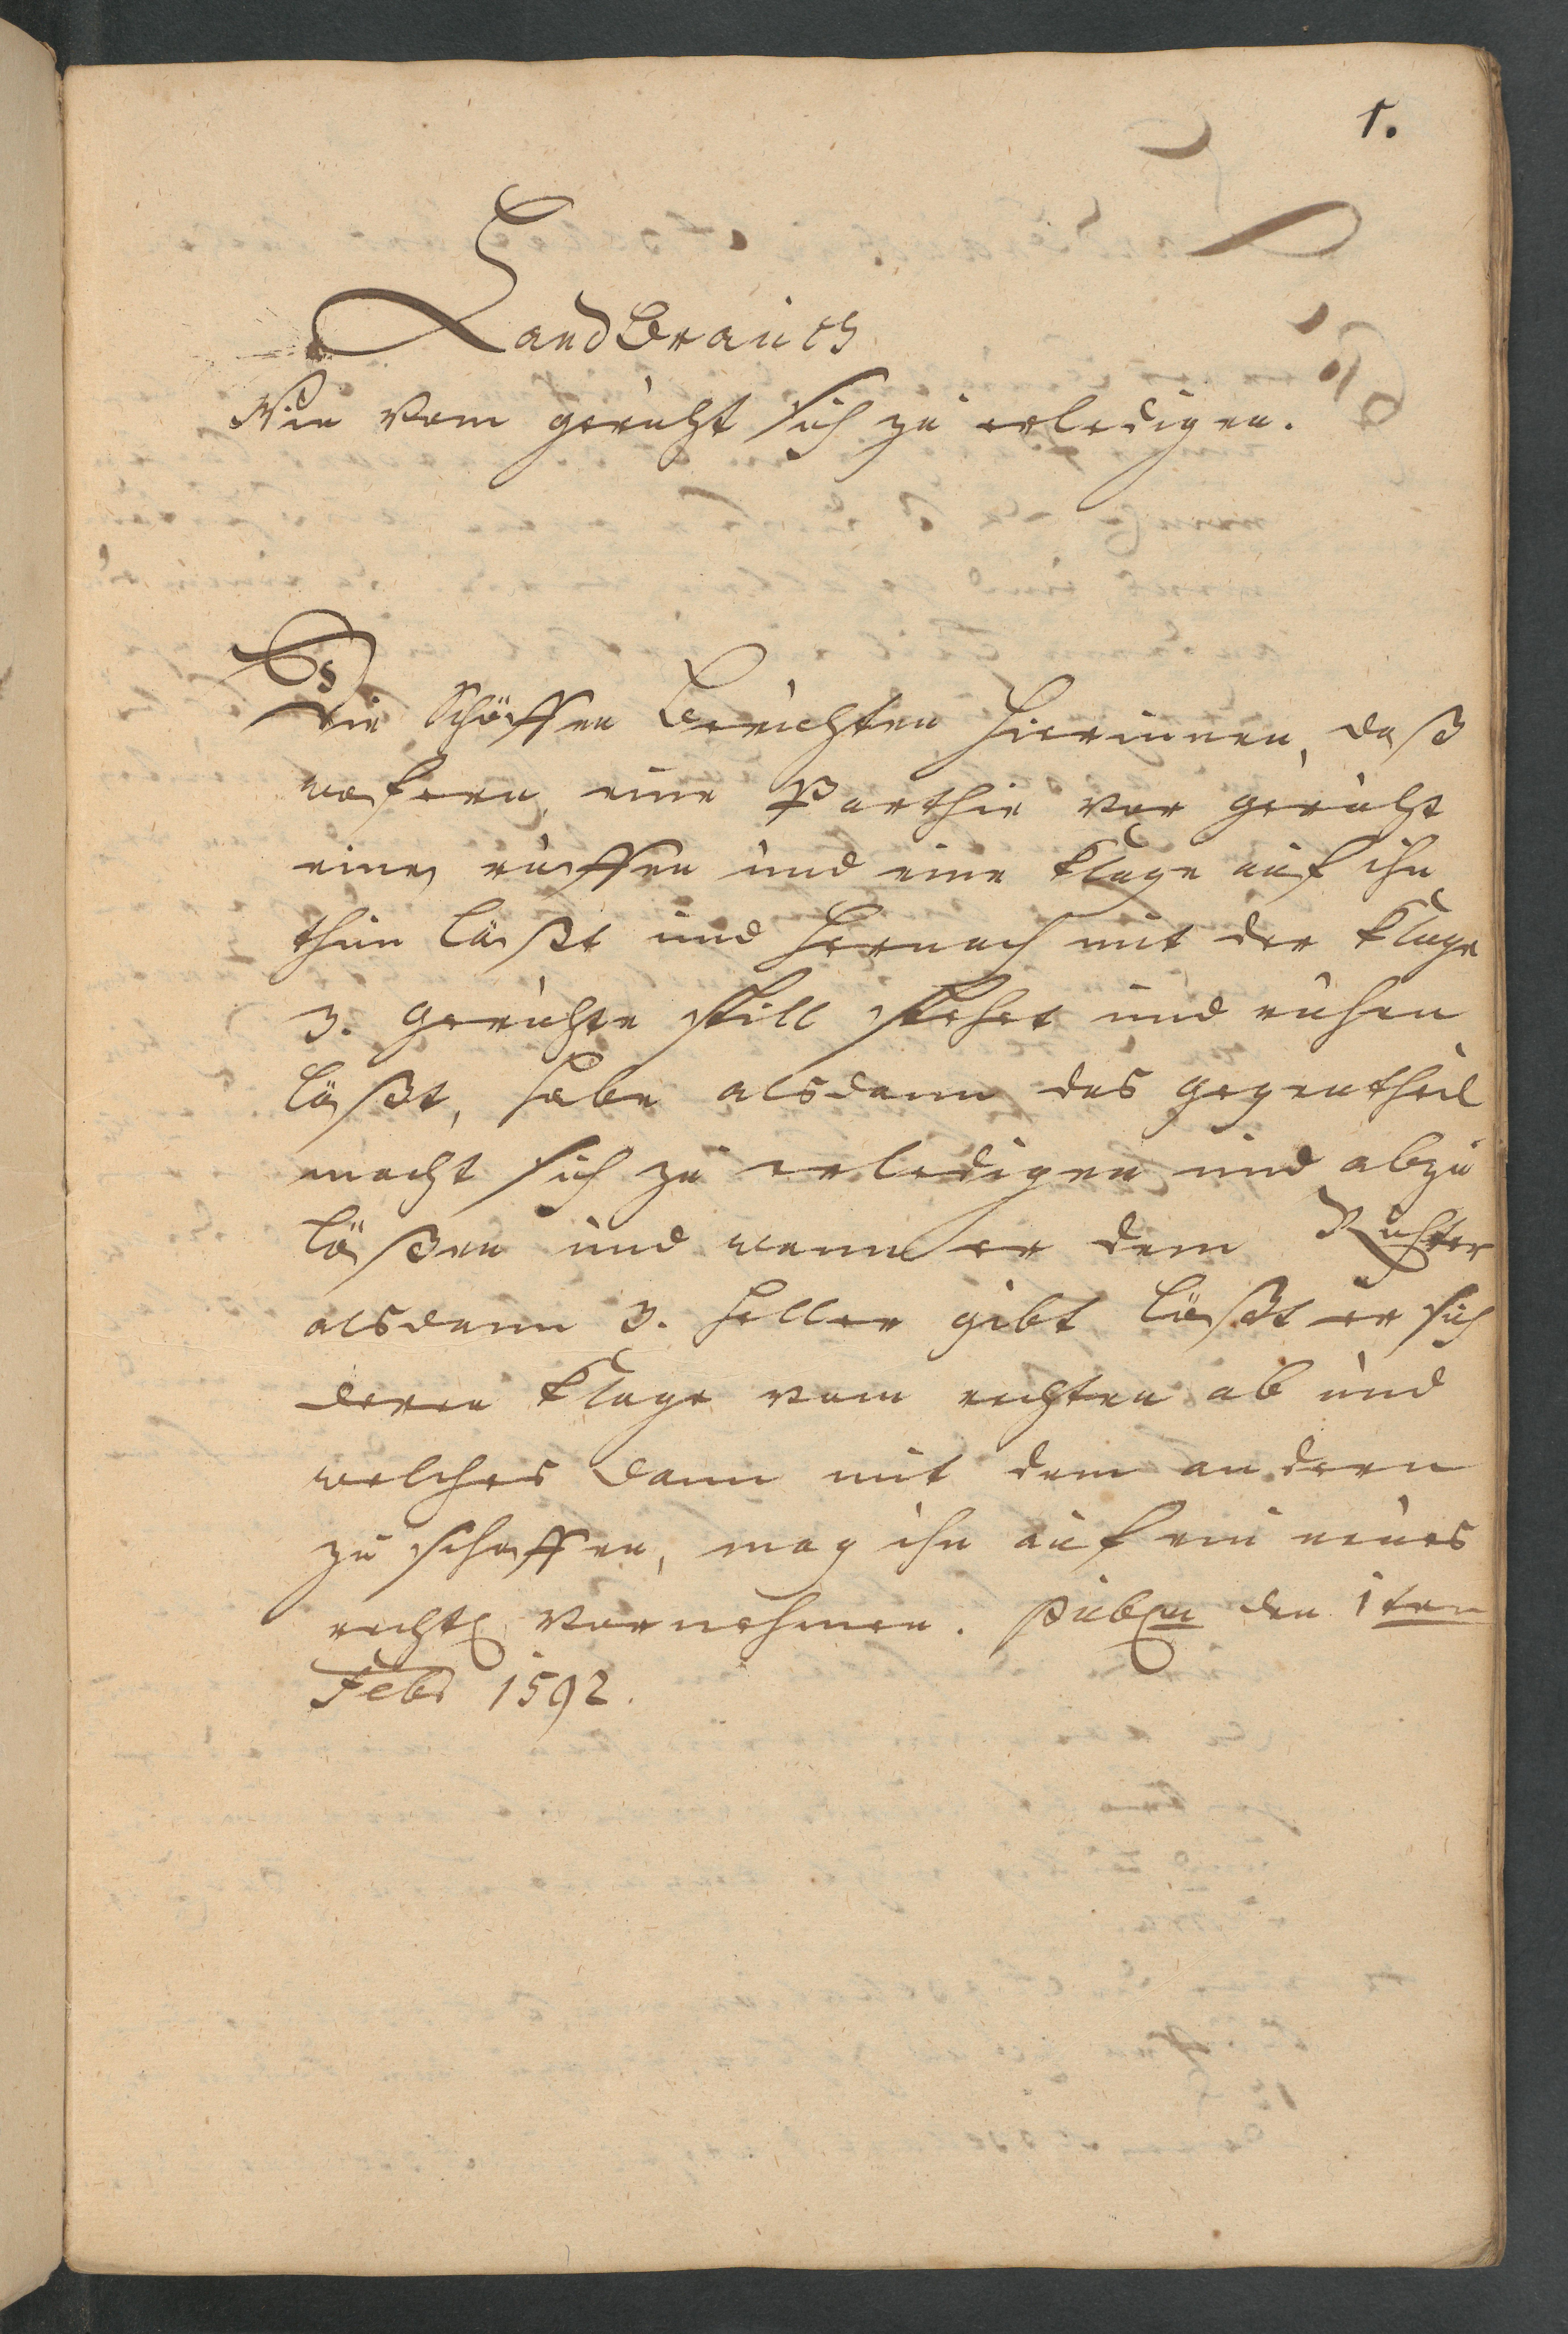 1.
Land Brauch
Wie vom gericht sich zu erledigen.
Die Schöffen Berichten Hierinnen, daß
wofern eine Parthie vor gericht
einen ruffen und eine Klage auf ihn
thun läßt und Hernach mit der Klage
3. gerichte still stehet und ruhen
läßt, habe alsdann das gegentheil
macht sich zu erledigen und abzu
läßen und wann er dem Richter
alsdann 3. Heller gibt läßt er sich
deren Klage vom rechten ab und
welches dann mit dem andern
zu schaffen, mag ihn auf ein neues
rechtl vornehmen. den 1ten
Febr 1592.